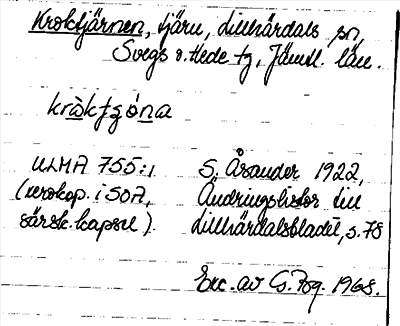 Kroktjärnen, tjärn, Lillhärdals sn,
Svegs o. Hede tg, Jämtl. län.
kràktzóna
ULMA 755:1 S. Åsander 1922,
(verskap. i SOA, Ändringslistor till
särsk. kapsel). Lillhärdalsbladet, s. 78
Exc. av G. Bg. 1968.